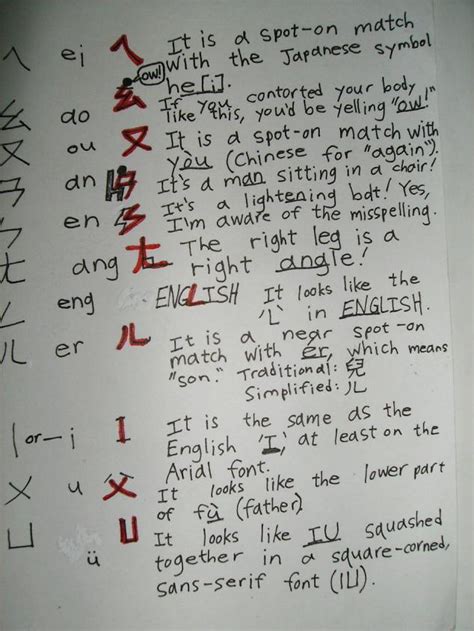 ㄟ ei ㄟ It is a spot-on match
with the Japanese symbol
ow! he[i].
ㄠ ao ㄠ If you contorted your body
like this, you'd be yelling "ow!"
ㄡ ou ㄡ It is a spot-on match with
yòu (Chinese for "again").
ㄢ an ㄢ It's a man sitting in a chair!
ㄣ en ㄣ It's a lightening bolt! Yes,
I'm aware of the misspelling.
ㄤ ang ㄤ The right leg is a
right angle!
ㄥ eng ENGLISH It looks like the
'L' in ENGLISH.
ㄦ er ㄦ It is a near spot-on
match with ér, which means
"son." Traditional: 兒
Simplified: 儿
| or — i I It is the same as the
English 'I', at least on the
Arial font.
ㄨ u 父 It looks like the lower part
of fù (father)
ㄩ ü ㄩ It looks like IU squashed
together in a square-corned,
sans-serif font (IU).